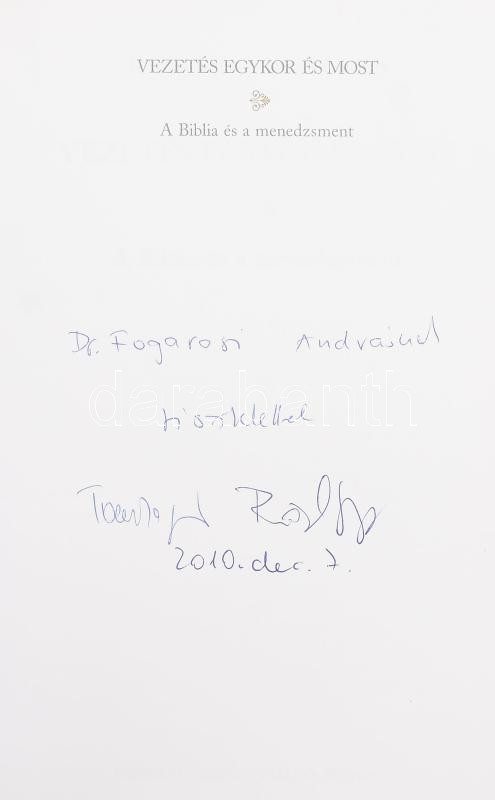 VEZETÉS EGYKOR ÉS MOST
A Biblia és a menedzsment
Dr. Fogarasi Andrásnak
darabanth
tisztelettel
2010. dec. 7.